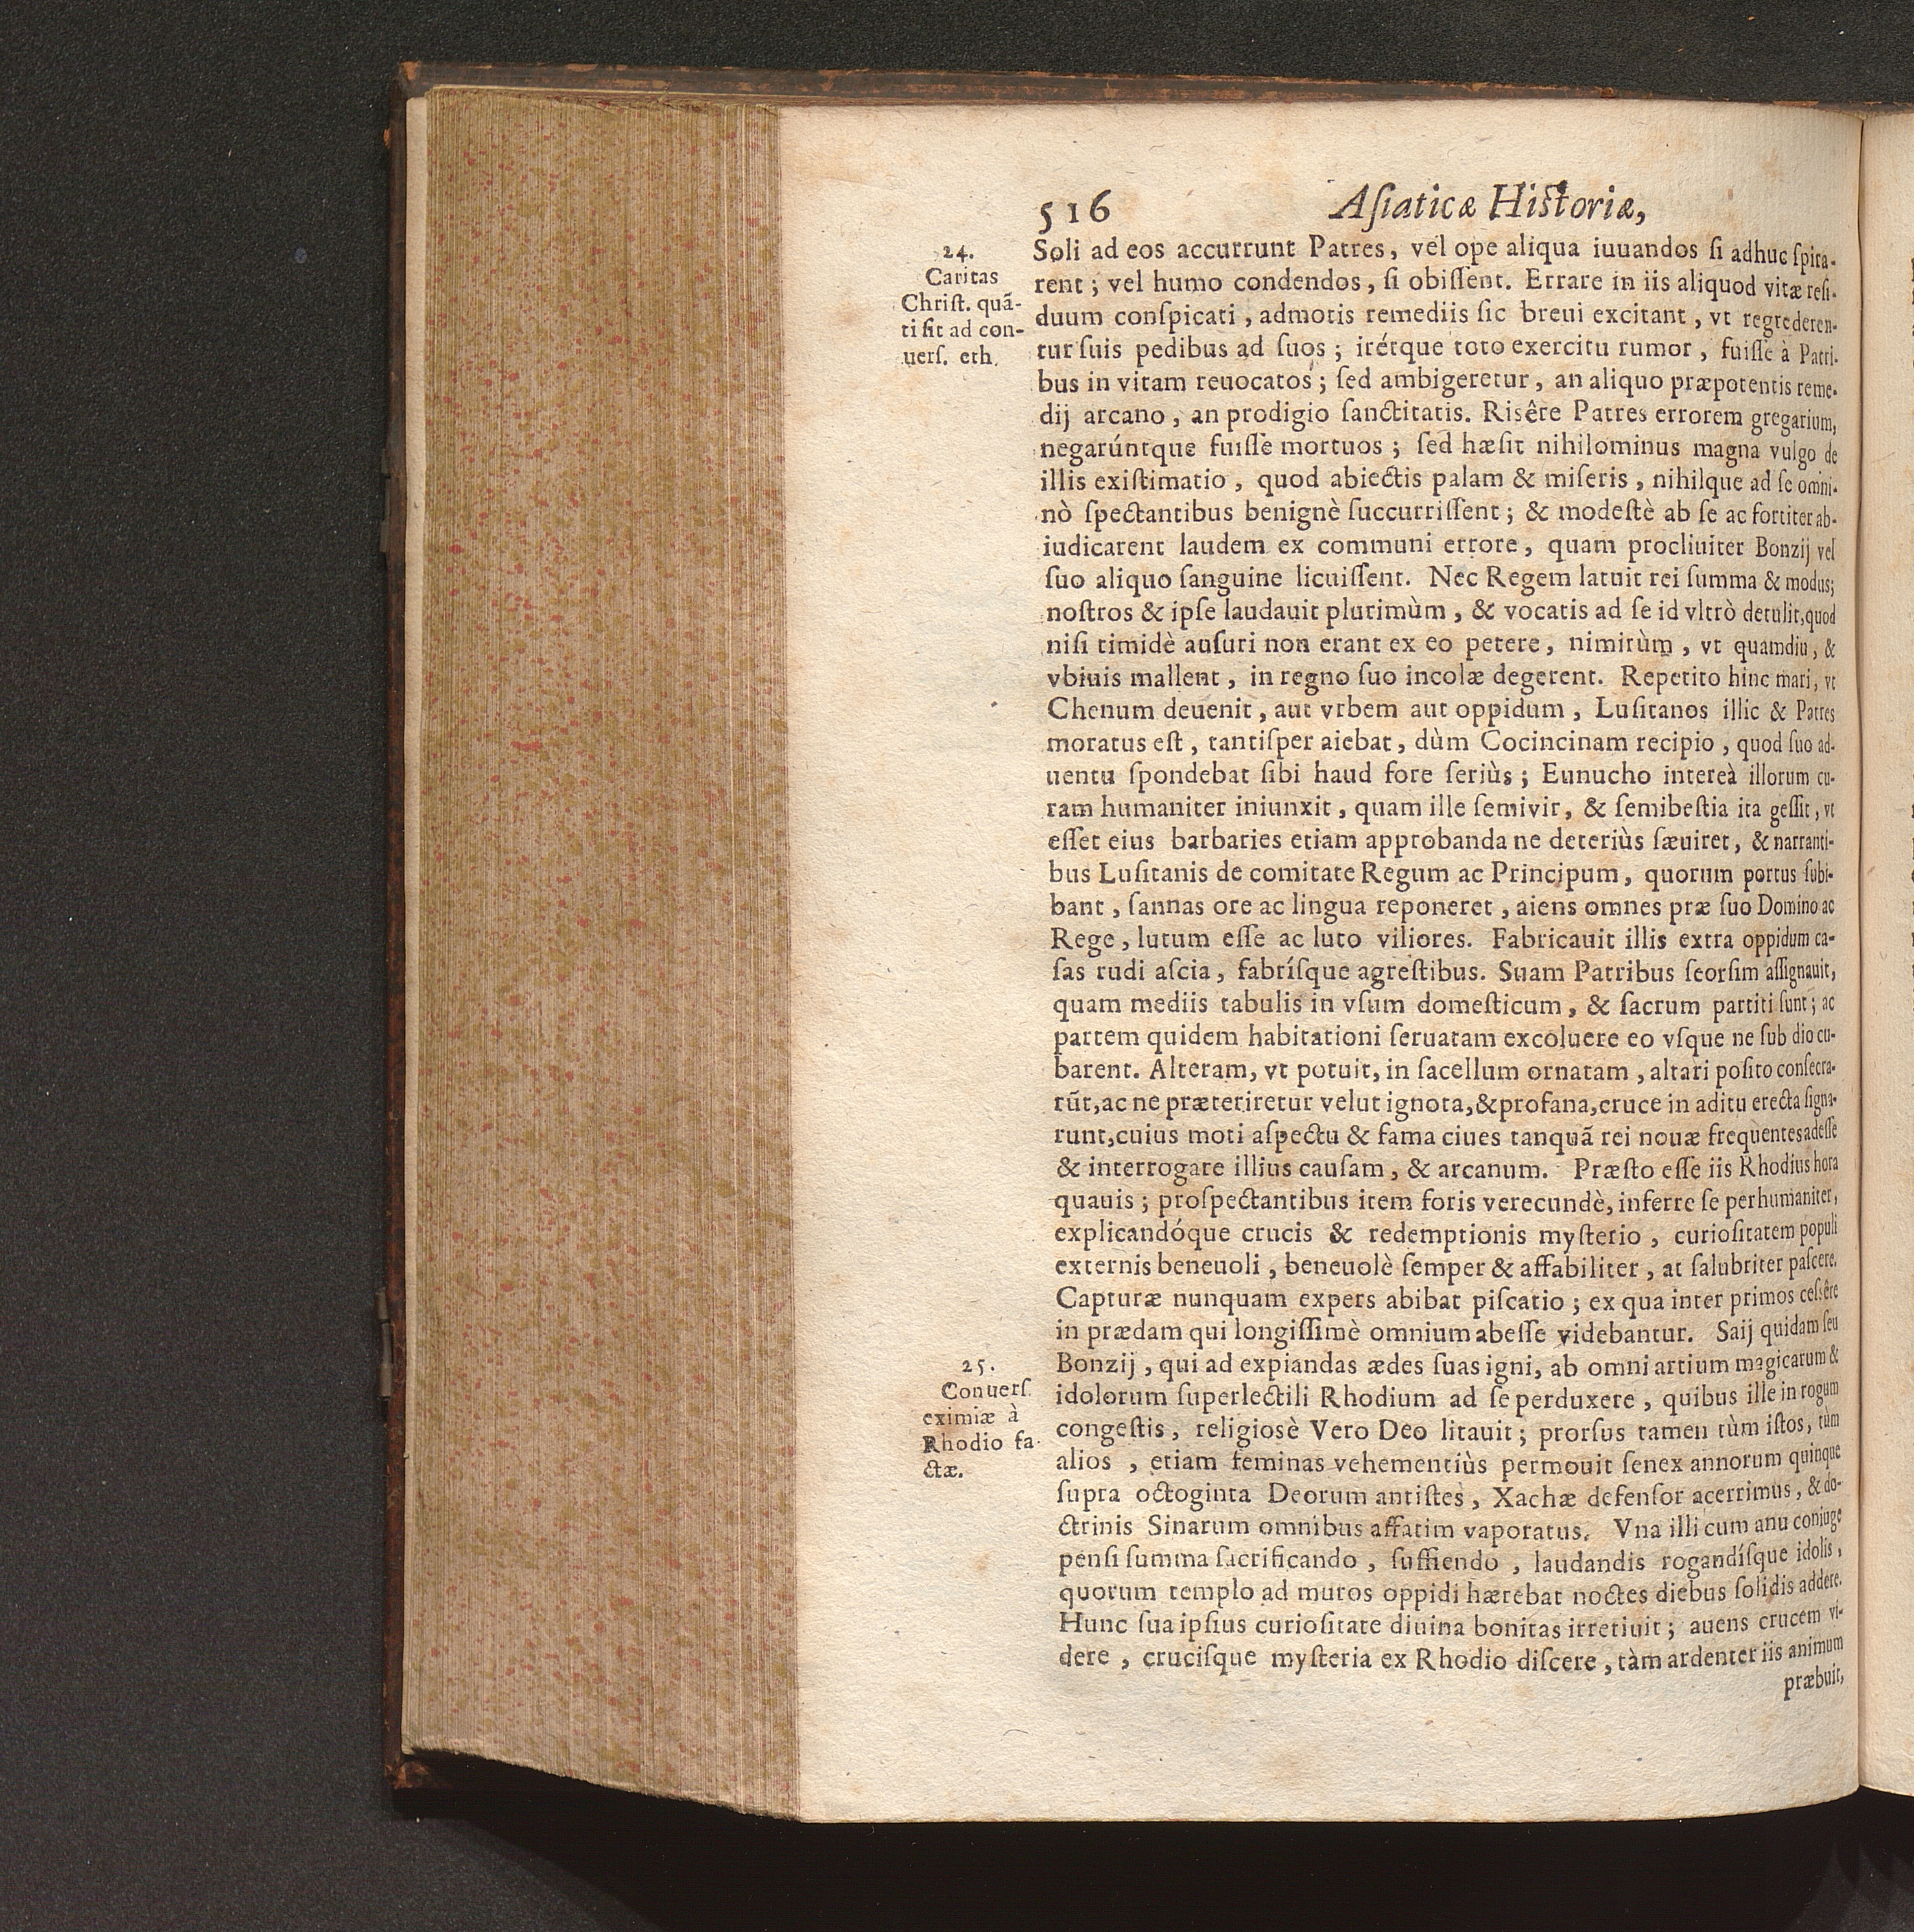 516 Aſiaticæ Hiſtoriæ,
24.
Caritas
Chriſt. quã-
ti ſit ad con-
uerſ. eth.
Soli ad eos accurrunt Patres, vel ope aliqua iuuandos ſi adhuc ſpira-
rent; vel humo condendos, ſi obiſſent. Errare in iis aliquod vitæ reſi-
duum conſpicati, admotis remediis ſic breui excitant, vt regrederen-
tur ſuis pedibus ad ſuos; irétque toto exercitu rumor, fuiſſe à Patri-
bus in vitam reuocatos; ſed ambigeretur, an aliquo præpotentis reme-
dij arcano, an prodigio ſanctitatis. Risêre Patres errorem gregarium,
negarúntque fuiſſe mortuos; ſed hæſit nihilominus magna vulgo de
illis exiſtimatio, quod abiectis palam & miſeris, nihilque ad ſe omni-
nò ſpectantibus benignè ſuccurriſſent; & modeſtè ab ſe ac fortiter ab-
iudicarent laudem ex communi errore, quam procliuiter Bonzij vel
ſuo aliquo ſanguine licuiſſent. Nec Regem latuit rei ſumma & modus;
noſtros & ipſe laudauit plurimùm, & vocatis ad ſe id vltrò detulit, quod
niſi timidè auſuri non erant ex eo petere, nimirùm, vt quamdiu, &
vbiuis mallent, in regno ſuo incolæ degerent. Repetito hinc mari, vt
Chenum deuenit, aut vrbem aut oppidum, Luſitanos illic & Patres
moratus eſt, tantiſper aiebat, dùm Cocincinam recipio, quod ſuo ad-
uentu ſpondebat ſibi haud fore ſeriùs; Eunucho intereà illorum cu-
ram humaniter iniunxit, quam ille ſemivir, & ſemibeſtia ita geſſit, vt
eſſet eius barbaries etiam approbanda ne deteriùs ſæuiret, & narranti-
bus Luſitanis de comitate Regum ac Principum, quorum portus ſubi-
bant, ſannas ore ac lingua reponeret, aiens omnes præ ſuo Domino ac
Rege, lutum eſſe ac luto viliores. Fabricauit illis extra oppidum ca-
ſas rudi aſcia, fabríſque agreſtibus. Suam Patribus ſeorſim aſſignauit,
quam mediis tabulis in vſum domeſticum, & ſacrum partiti ſunt; ac
partem quidem habitationi ſeruatam excoluere eo vſque ne ſub dio cu-
barent. Alteram, vt potuit, in ſacellum ornatam, altari poſito conſecra-
rũt, ac ne præteriretur velut ignota, & profana, cruce in aditu erecta ſigna-
runt, cuius moti aſpectu & fama ciues tanquã rei nouæ frequentes adeſſe
& interrogare illius cauſam, & arcanum. Præſto eſſe iis Rhodius hora
quauis; proſpectantibus item foris verecundè, inferre ſe perhumaniter,
explicandóque crucis & redemptionis myſterio, curioſitatem populi
externis beneuoli, beneuolè ſemper & affabiliter, at ſalubriter paſcere.
Capturæ nunquam expers abibat piſcatio; ex qua inter primos ceſſêre
in prædam qui longiſſimè omnium abeſſe videbantur. Saij quidam ſeu
25.
Conuerſ.
eximiæ à
Rhodio fa-
ctæ.
Bonzij, qui ad expiandas ædes ſuas igni, ab omni artium magicarum &
idolorum ſuperlectili Rhodium ad ſe perduxere, quibus ille in rogum
congeſtis, religiosè Vero Deo litauit; prorſus tamen tùm iſtos, tùm
alios, etiam feminas vehementiùs permouit ſenex annorum quinque
ſupra octoginta Deorum antiſtes, Xachæ defenſor acerrimus, & do-
ctrinis Sinarum omnibus affatim vaporatus. Vna illi cum anu coniuge
penſi ſumma ſacrificando, ſuffiendo, laudandis rogandíſque idolis,
quorum templo ad muros oppidi hærebat noctes diebus ſolidis addere.
Hunc ſua ipſius curioſitate diuina bonitas irretiuit; auens crucem vi-
dere, cruciſque myſteria ex Rhodio diſcere, tàm ardenter iis animum
præbuit,